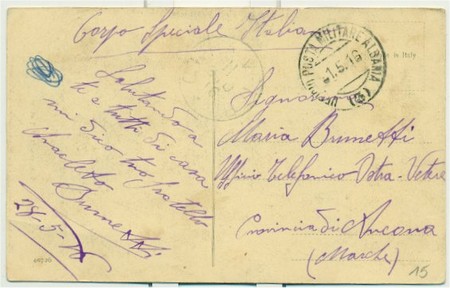 Corpo Speciale Italia
Salutando a
te e tutti di casa
mi dico tuo fratello
Anacleto
Brunetti
28-5-16
UFFICIO POSTA MILITARE ALBANIA
1.5.16
(3)
Signora
Maria Brunetti
Ufficio Telefonico Ostra-Vetere
Provincia di Ancona
(Marche)
15